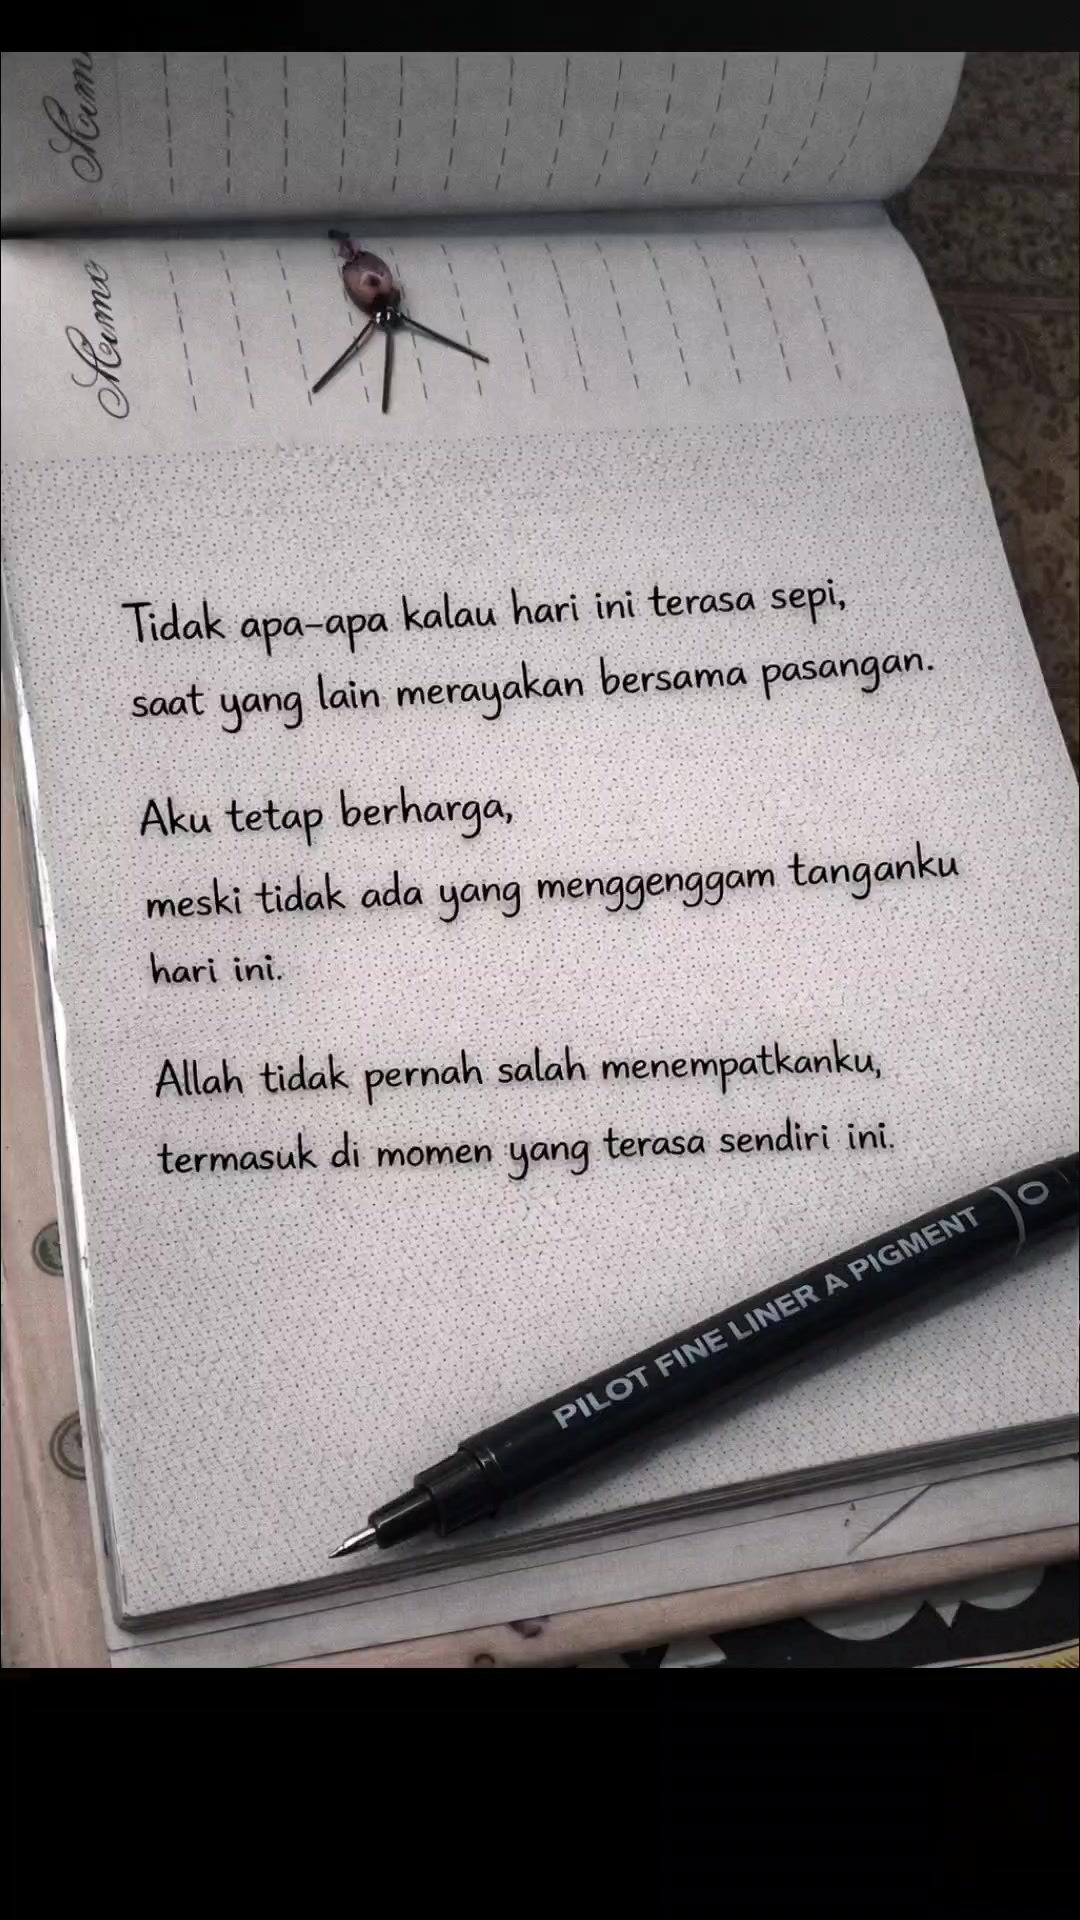 Hama
Hama
Tidak apa-apa kalau hari ini terasa sepi,
saat yang lain merayakan bersama pasangan.
Aku tetap berharga,
meski tidak ada yang menggenggam tanganku
hari ini.
Allah tidak pernah salah menempatkanku,
termasuk di momen yang terasa sendiri ini.
PILOT FINE LINER A PIGMENT